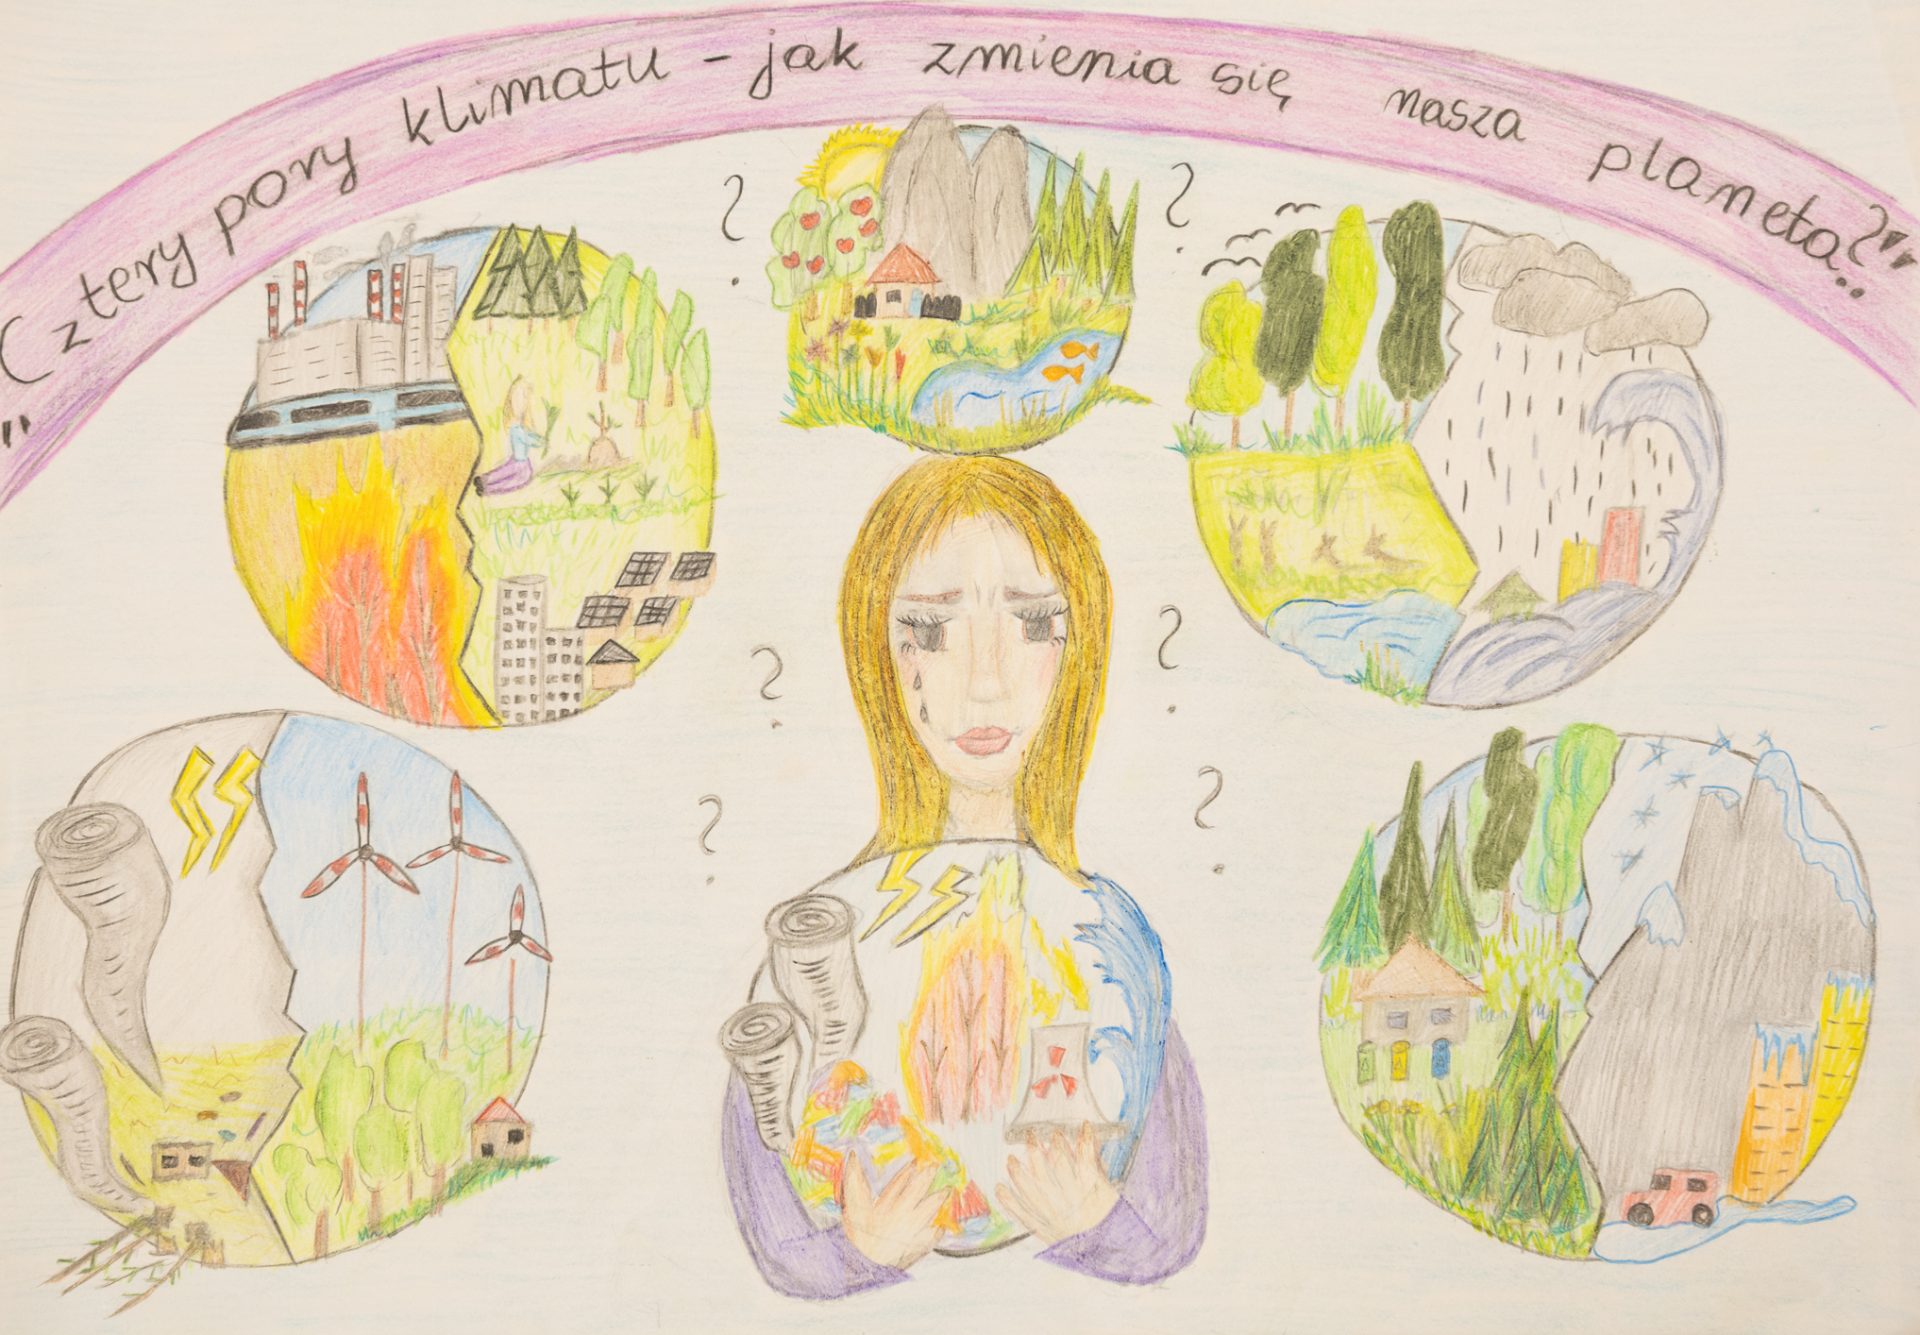 "Cztery pory klimatu - jak zmienia się nasza planeta..?"
?
?
?
?
?
?